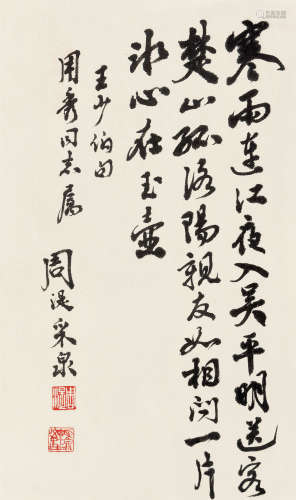 寒雨連江夜入吴平明送客
楚山孤洛陽親友如相問一片
冰心在玉壺
王少伯句
用秀同志属
周湜采泉